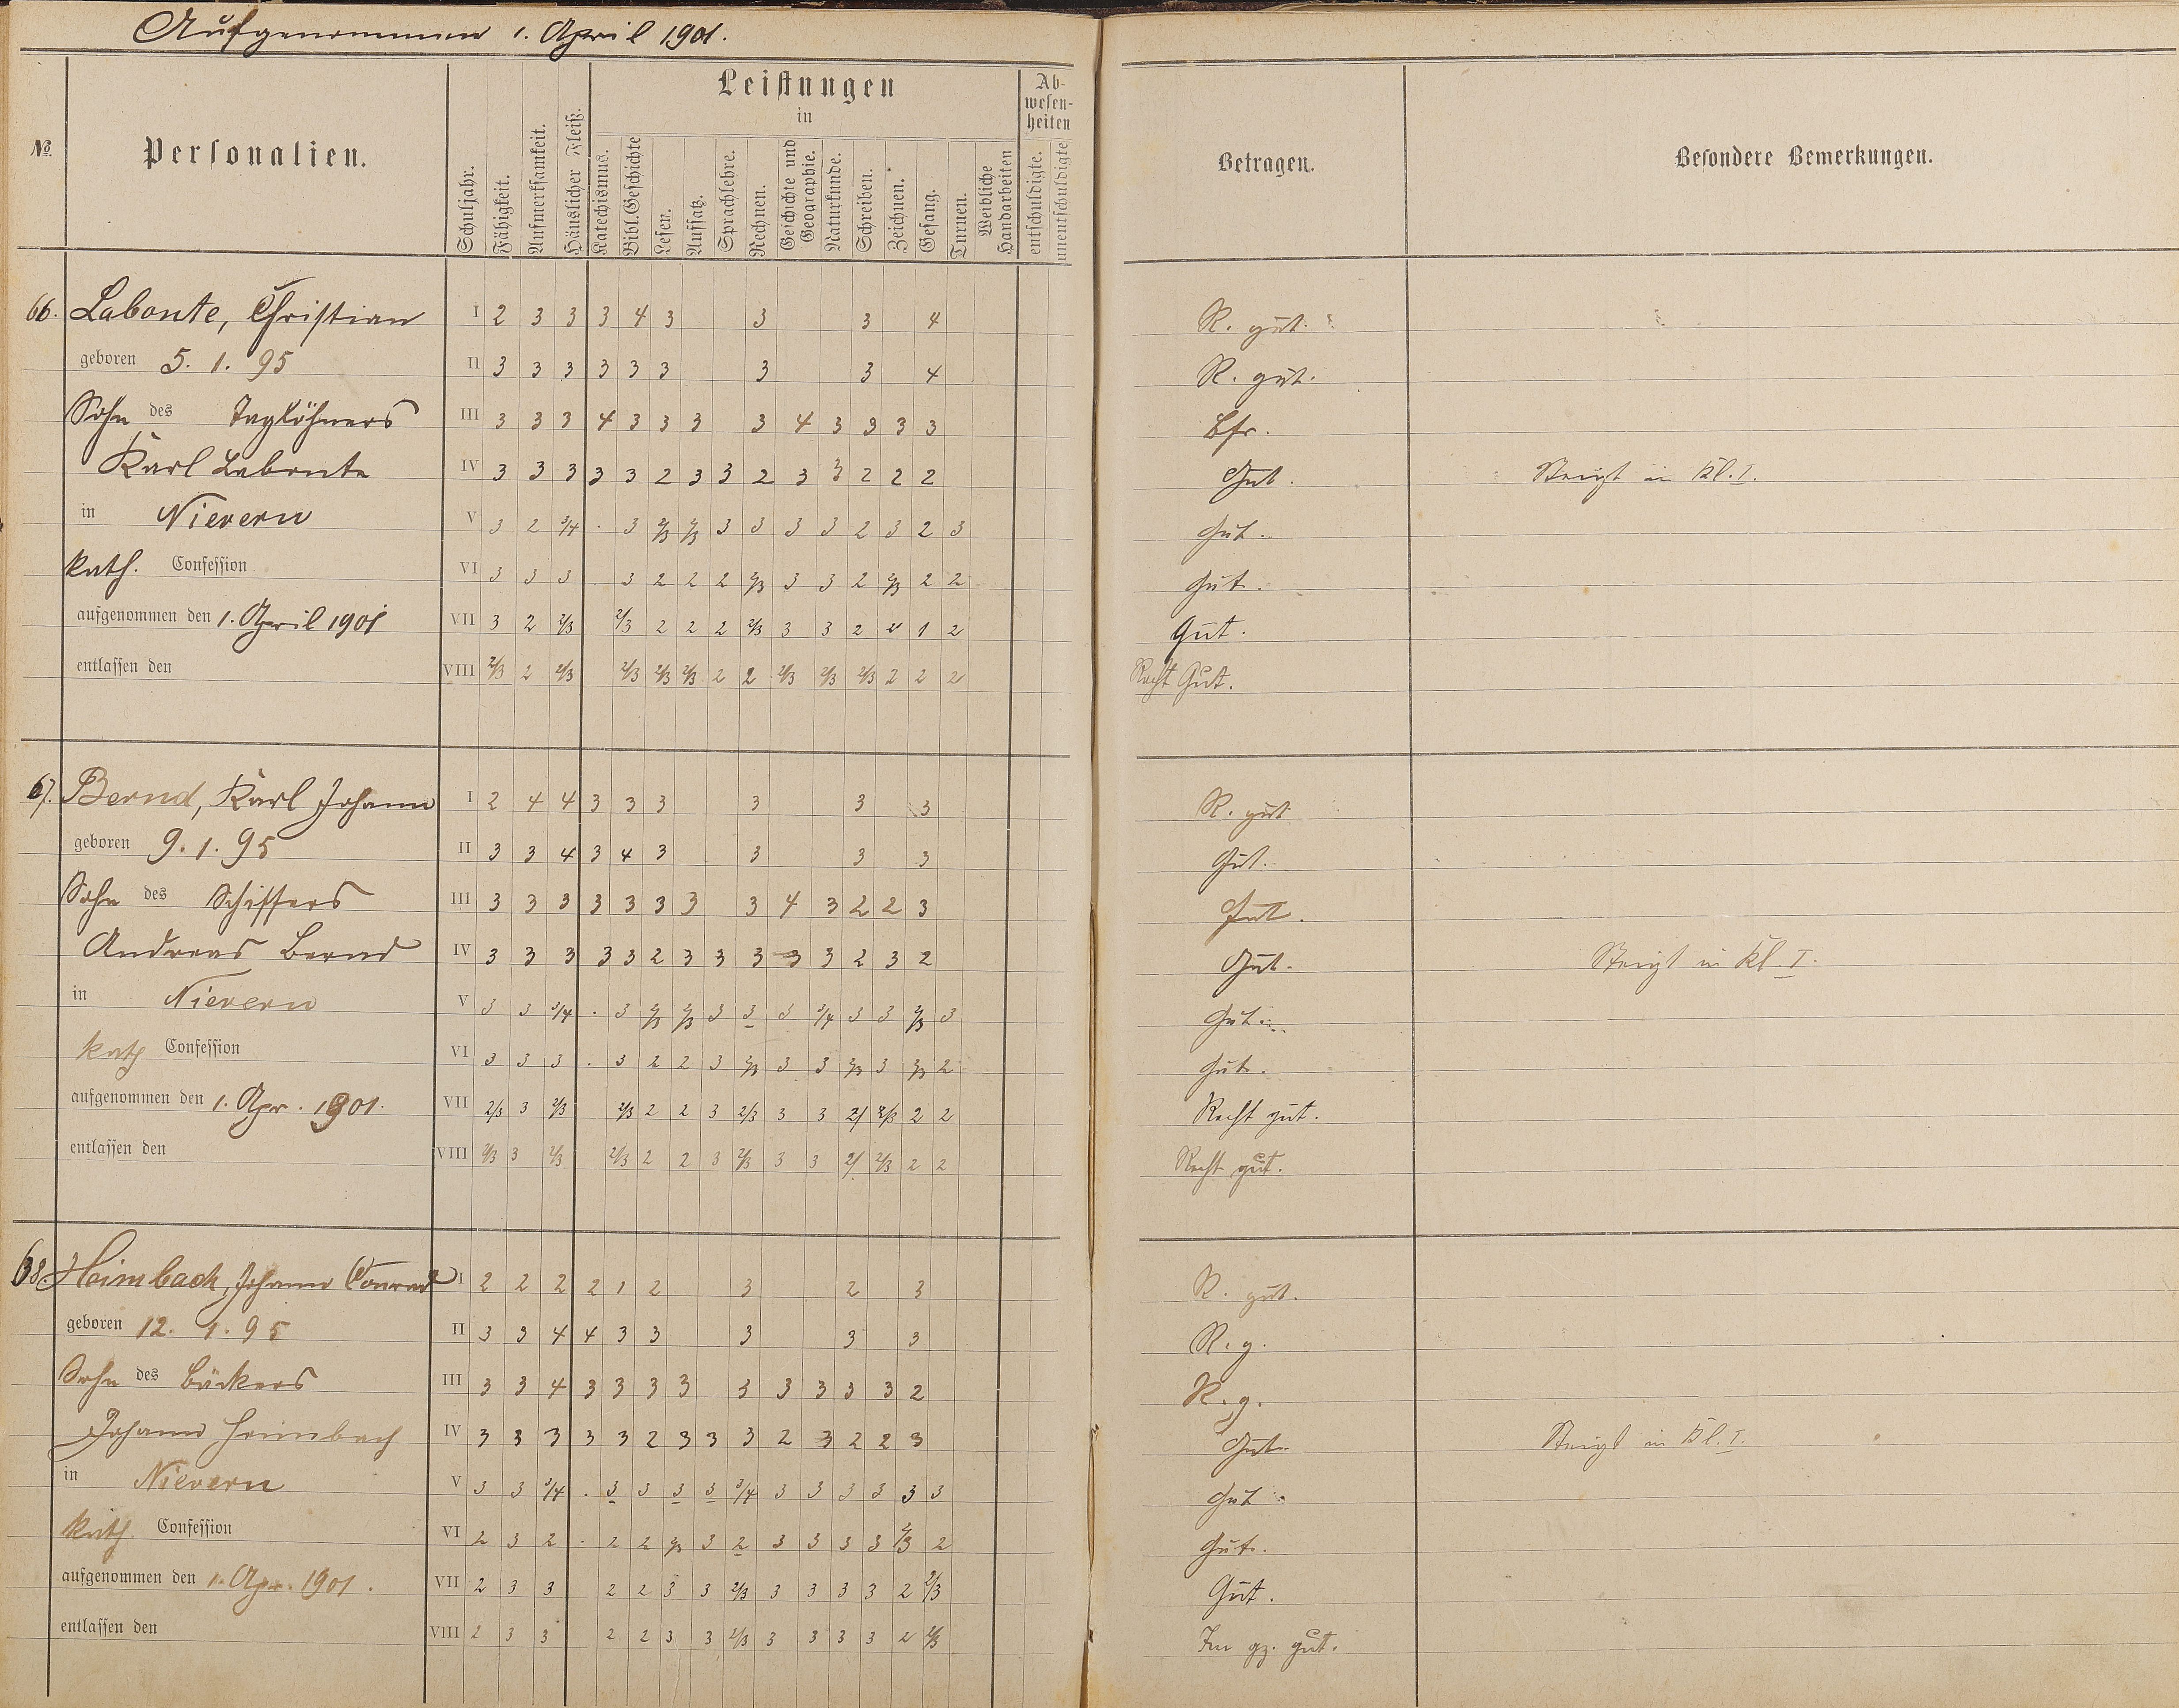 Aufgenommen 1. April 1901.
No. Personalien. Schuljahr. Fähigkeit. Aufmerksamkeit. Häuslicher Fleiß. Leistungen in Katechismus. Bibl. Geschichte Lesen. Aufsatz. Sprachlehre. Rechnen. Geschichte und Geographie. Naturkunde. Schreiben. Zeichnen. Gesang. Turnen. Weibliche Handarbeiten Abwesenheiten entschuldigte. unentschuldigte Betragen. Besondere Bemerkungen.
66. Labonte, Christian I 2 3 3 3 4 3 3 3 4 R. gut.
geboren 5. 1. 95 II 3 3 3 3 3 3 3 3 4 R. gut.
Sohn des Taglöhners III 3 3 3 4 3 3 3 3 4 3 3 3 3 Bfr.
Karl Labonte IV 3 3 3 3 3 2 3 3 2 3 3 2 2 2 Gut. Steigt in Kl. I.
in Nievern V 3 2 3/4 . 3 2/3 2/3 3 3 3 3 2 3 2 3 Gut.
kath. Confession VI 3 3 3 . 3 2 2 2 2/3 3 3 2 2/3 2 2 Gut.
aufgenommen den 1. April 1901 VII 3 2 2/3 2/3 2 2 2 2/3 3 3 2 2 1 2 Gut.
entlassen den VIII 2/3 2 2/3 2/3 2/3 2/3 2 2 2/3 2/3 2/3 2 2 2 Recht Gut.
67. Bernd, Karl Johann I 2 4 4 3 3 3 3 3 3 R. gut
geboren 9. 1. 95 II 3 3 4 3 4 3 3 3 3 Gut.
Sohn des Schiffers III 3 3 3 3 3 3 3 3 4 3 2 2 3 Gut.
Andreas Bernd IV 3 3 3 3 3 2 3 3 3 3 3 2 3 2 Gut. Steigt in Kl. I.
in Nievern V 3 3 3/4 . 3 2/3 2/3 3 3 3 3/4 3 3 2/3 3 Gut.
kath Confession VI 3 3 3 . 3 2 2 3 2/3 3 3 2/3 3 2/3 2 Gut.
aufgenommen den 1. Apr. 1901. VII 2/3 3 2/3 2/3 2 2 3 2/3 3 3 2/ 2/3 2 2 Recht gut.
entlassen den VIII 2/3 3 2/3 2/3 2 2 3 2/3 3 3 2/ 2/3 2 2 Recht gut.
68. Heimbach, Johann Conrad I 2 2 2 2 1 2 3 2 3 R. gut.
geboren 12. 1. 95 II 3 3 4 4 3 3 3 3 3 R. g.
Sohn des Bäckers III 3 3 4 3 3 3 3 3 3 3 3 3 2 R. g.
Johann Heimbach IV 3 3 3 3 3 2 3 3 3 2 3 2 2 3 Gut. Steigt in Kl. I.
in Nievern V 3 3 3/4 . 3 3 3 3 3/4 3 3 3 3 3 3 Gut
kath. Confession VI 2 3 2 . 2 2 2/3 3 2 3 3 3 3 2/3 2 Gut.
aufgenommen den 1. Apr. 1901. VII 2 3 3 2 2 3 3 2/3 3 3 3 3 2 2/3 Gut.
entlassen den VIII 2 3 3 2 2 3 3 2/3 3 3 3 3 2 2/3 Im gz. gut.